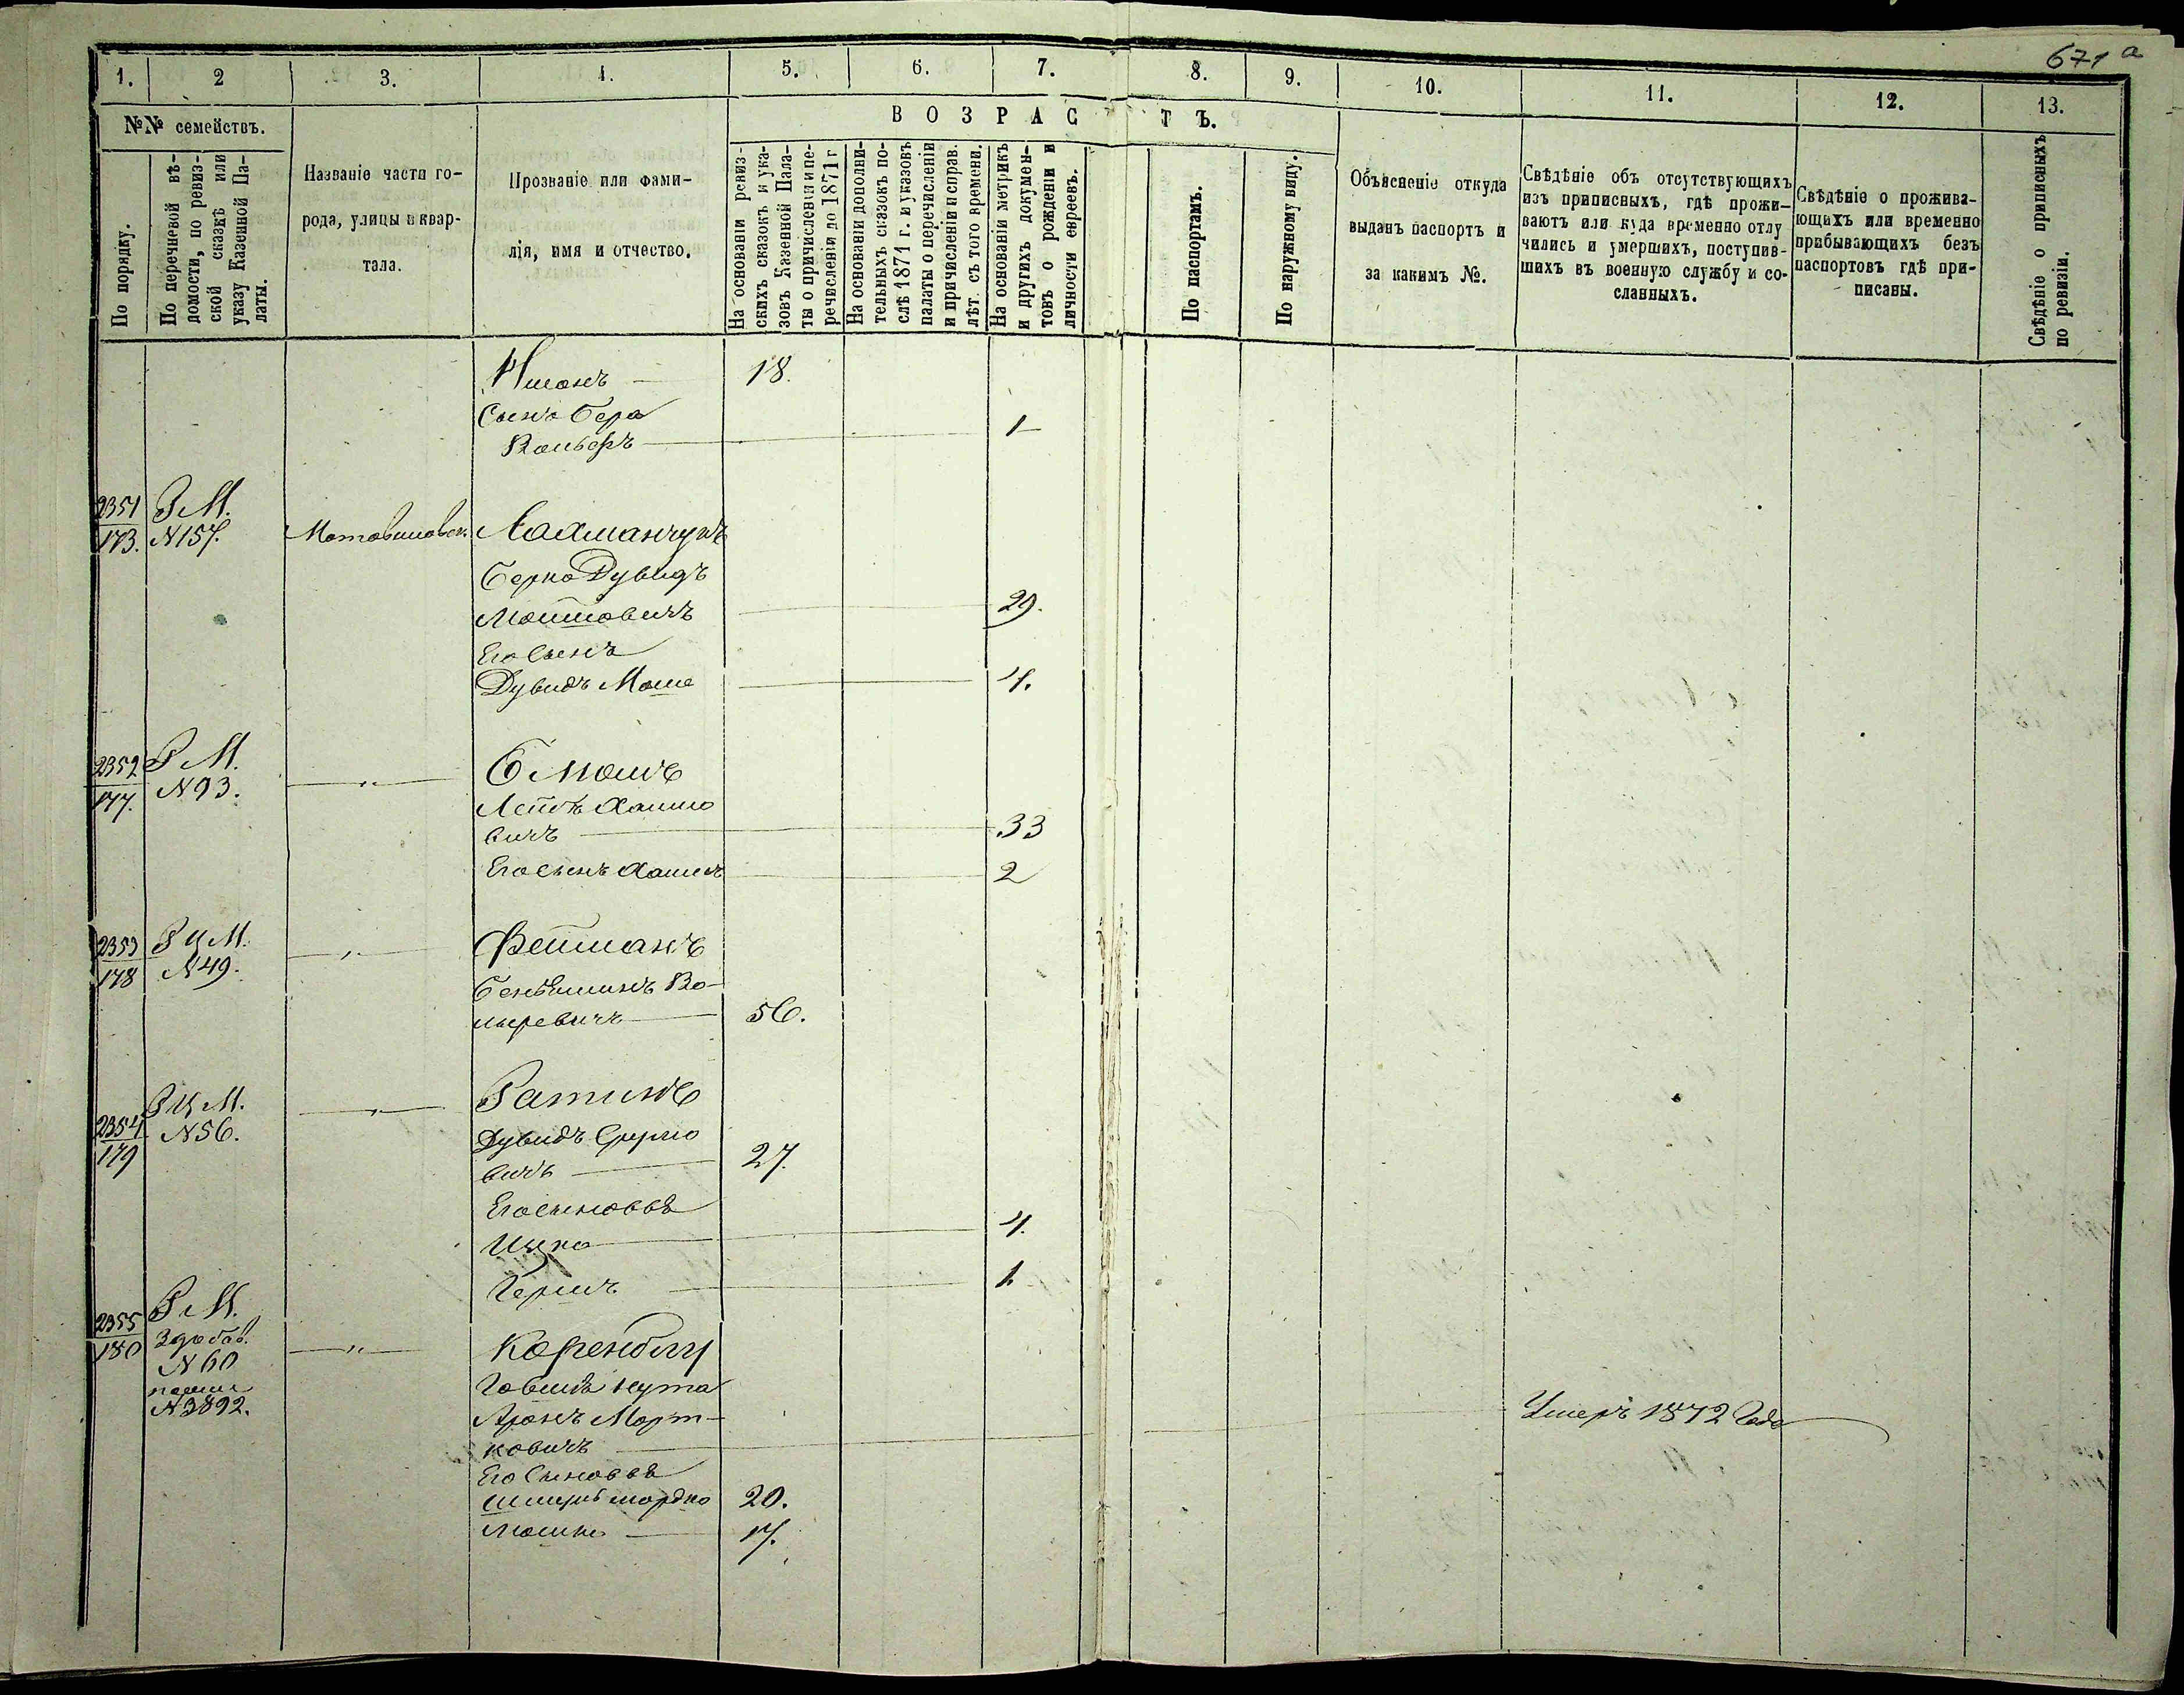 671 а
1. 2 3. 4. 5. 6. 7. 8. 9. 10. 11. 12. 13.
№№ семействъ.
По порядку.
По перечневой вѣ-
домости, по ревиз-
ской сказкѣ или
указу Казенной Па-
латы.
Названіе части го-
рода, улицы и квар-
тала.
Прозваніе или фами-
лія, имя и отчество.
ВОЗРАСТЪ.
На основаніи ревиз-
скихъ сказокъ и ука-
зовъ Казенной Пала-
ты о причисленіи и пе-
речисленіи до 1871 г
На основаніи дополни-
тельныхъ сказокъ по-
слѣ 1871 г. и указовъ
палаты о перечисленіи
и причисленіи и справ.
лѣт. съ того времени.
На основаніи метрикъ
и другихъ докумен-
товъ о рожденіи и
личности евреевъ.
По паспортамъ.
По наружному виду.
Объясненіе откуда
выданъ паспортъ и
за какимъ №.
Свѣдѣніе объ отсутствующихъ
изъ приписныхъ, гдѣ прожи-
ваютъ или куда временно отлу
чились и умершихъ, поступив-
шихъ въ военную службу и со-
сланныхъ.
Свѣдѣніе о прожива-
ющихъ или временно
прибывающихъ безъ
паспортовъ гдѣ при-
писаны.
Свѣдѣніе о приписныхъ
по ревизіи.
18.
Сынъ Бера
Вольфъ 1
2351 Р М.
173. N 157. Мотовиловск. Лахманчукъ
Берко Дувидъ
Мошковичъ 29.
Его Сынъ
Дувидъ Моше 4.
2352 Р М.
177. N 93. „
Лейбъ Хаимо
вичъ 33
Его сынъ Хаимъ 2
2353 Р Ц М. „ Фейманъ
178 N 49.
Беньяминъ Во-
льфевичъ 56.
Р Ц М. „ Ратинъ
2354 N 56.
179 Дувидъ Сруло
вичъ 27.
Его сыновья
Ицко 4.
Гершъ 1.
2355 Р М.
180 З добав. „ Коренблит
N 60
N 3892. Нута
Аронъ Морт-
ковичъ Умеръ 1872 Года
Его Сыновья
Шмуль мордко 20.
Мошко 17.